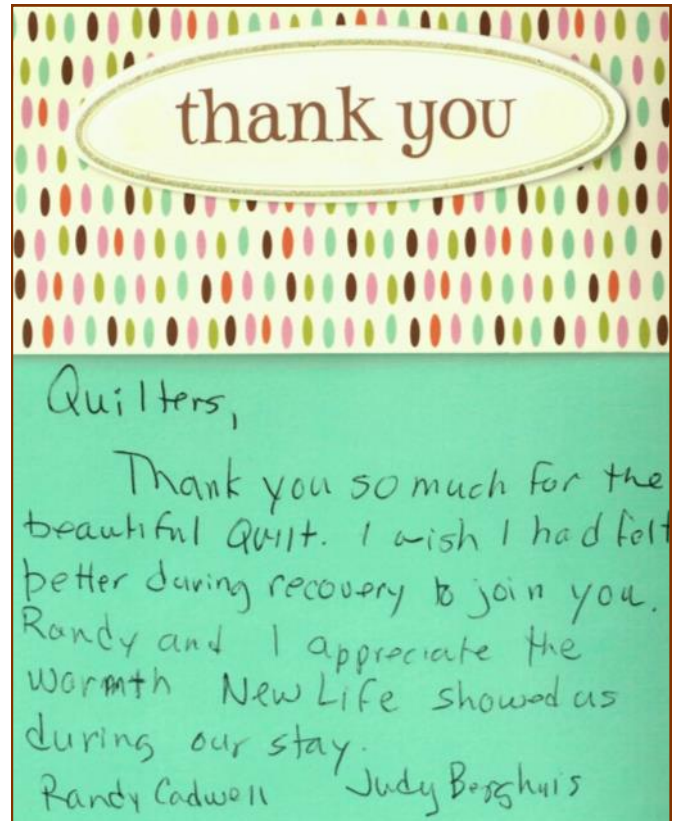 thank you
Quilters,
Thank you so much for the
beautiful Quilt. I wish I had felt
better during recovery to join you.
Randy and I appreciate the
warmth New Life showed us
during our stay.
Randy Cadwell Judy Berghuis